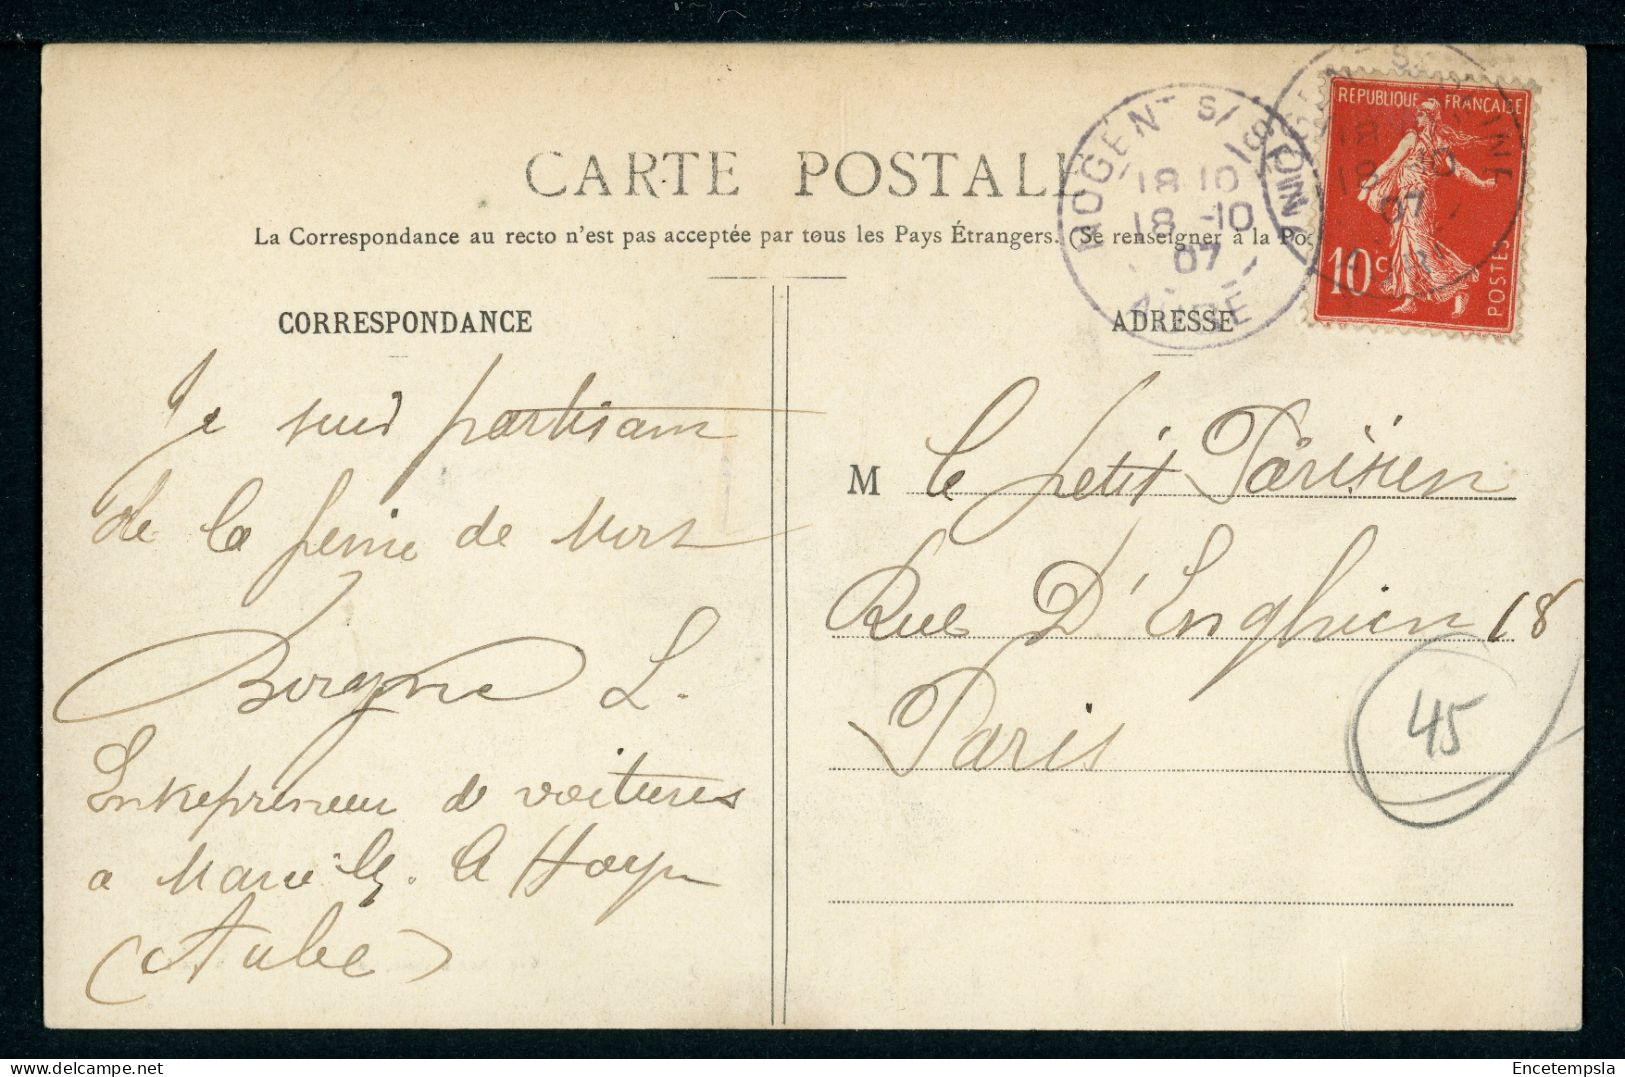 CARTE POSTALE
La Correspondance au recto n'est pas acceptée par tous les Pays Étrangers. (Se renseigner à la Pos
CORRESPONDANCE
ADRESSE
NOGENT S/ SEINE
18 10
18 -10
07
AUBE
REPUBLIQUE FRANÇAISE
10c
POSTES
Je suis partisam
de la peine de Mort
L.
Entrepreneur de voitures
a Marcilly. le Haye
(Aube)
M le petit Parisien
Rue D'Enghien 18
Paris
45
delcampe.net
Encetempsla